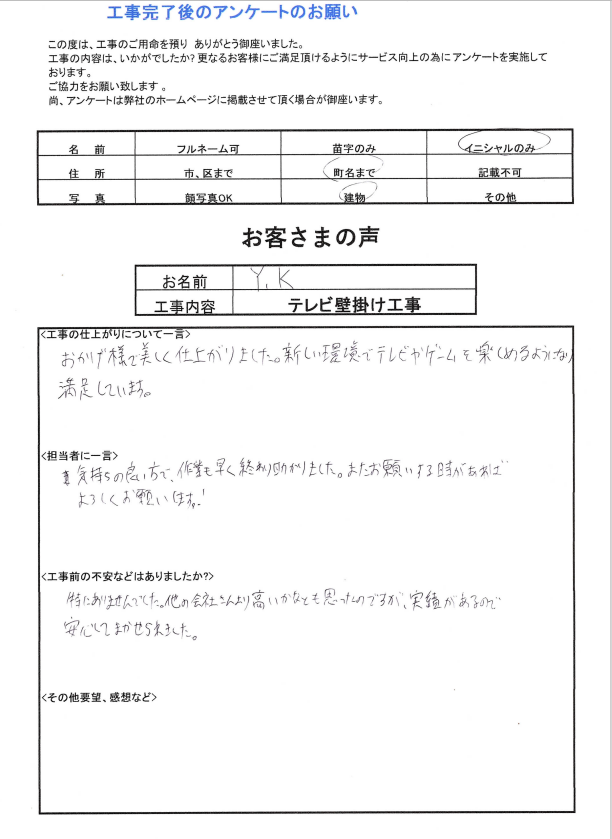 工事完了後のアンケートのお願い
この度は、工事のご用命を預り ありがとう御座いました。
工事の内容は、いかがでしたか?更なるお客様にご満足頂けるようにサービス向上の為にアンケートを実施して
おります。
ご協力をお願い致します。
尚、アンケートは弊社のホームページに掲載させて頂く場合が御座います。
名 前 フルネーム可 苗字のみ イニシャルのみ
住 所 市、区まで 町名まで 記載不可
写 真 顔写真OK 建物 その他
お客さまの声
お名前 Y.K
工事内容 テレビ壁掛け工事
<工事の仕上がりについて一言>
おかげ様で美しく仕上がりました。新しい環境でテレビやゲームを楽しめるようになり
満足しています。
<担当者に一言>
気持ちの良い方で、作業も早く終わり助かりました。またお願いする時があれば
よろしくお願いします。!
<工事前の不安などはありましたか?>
特にありませんでした。他の会社さんより高いかなとも思ったのですが、実績があるので
安心してまかせられました。
<その他要望、感想など>